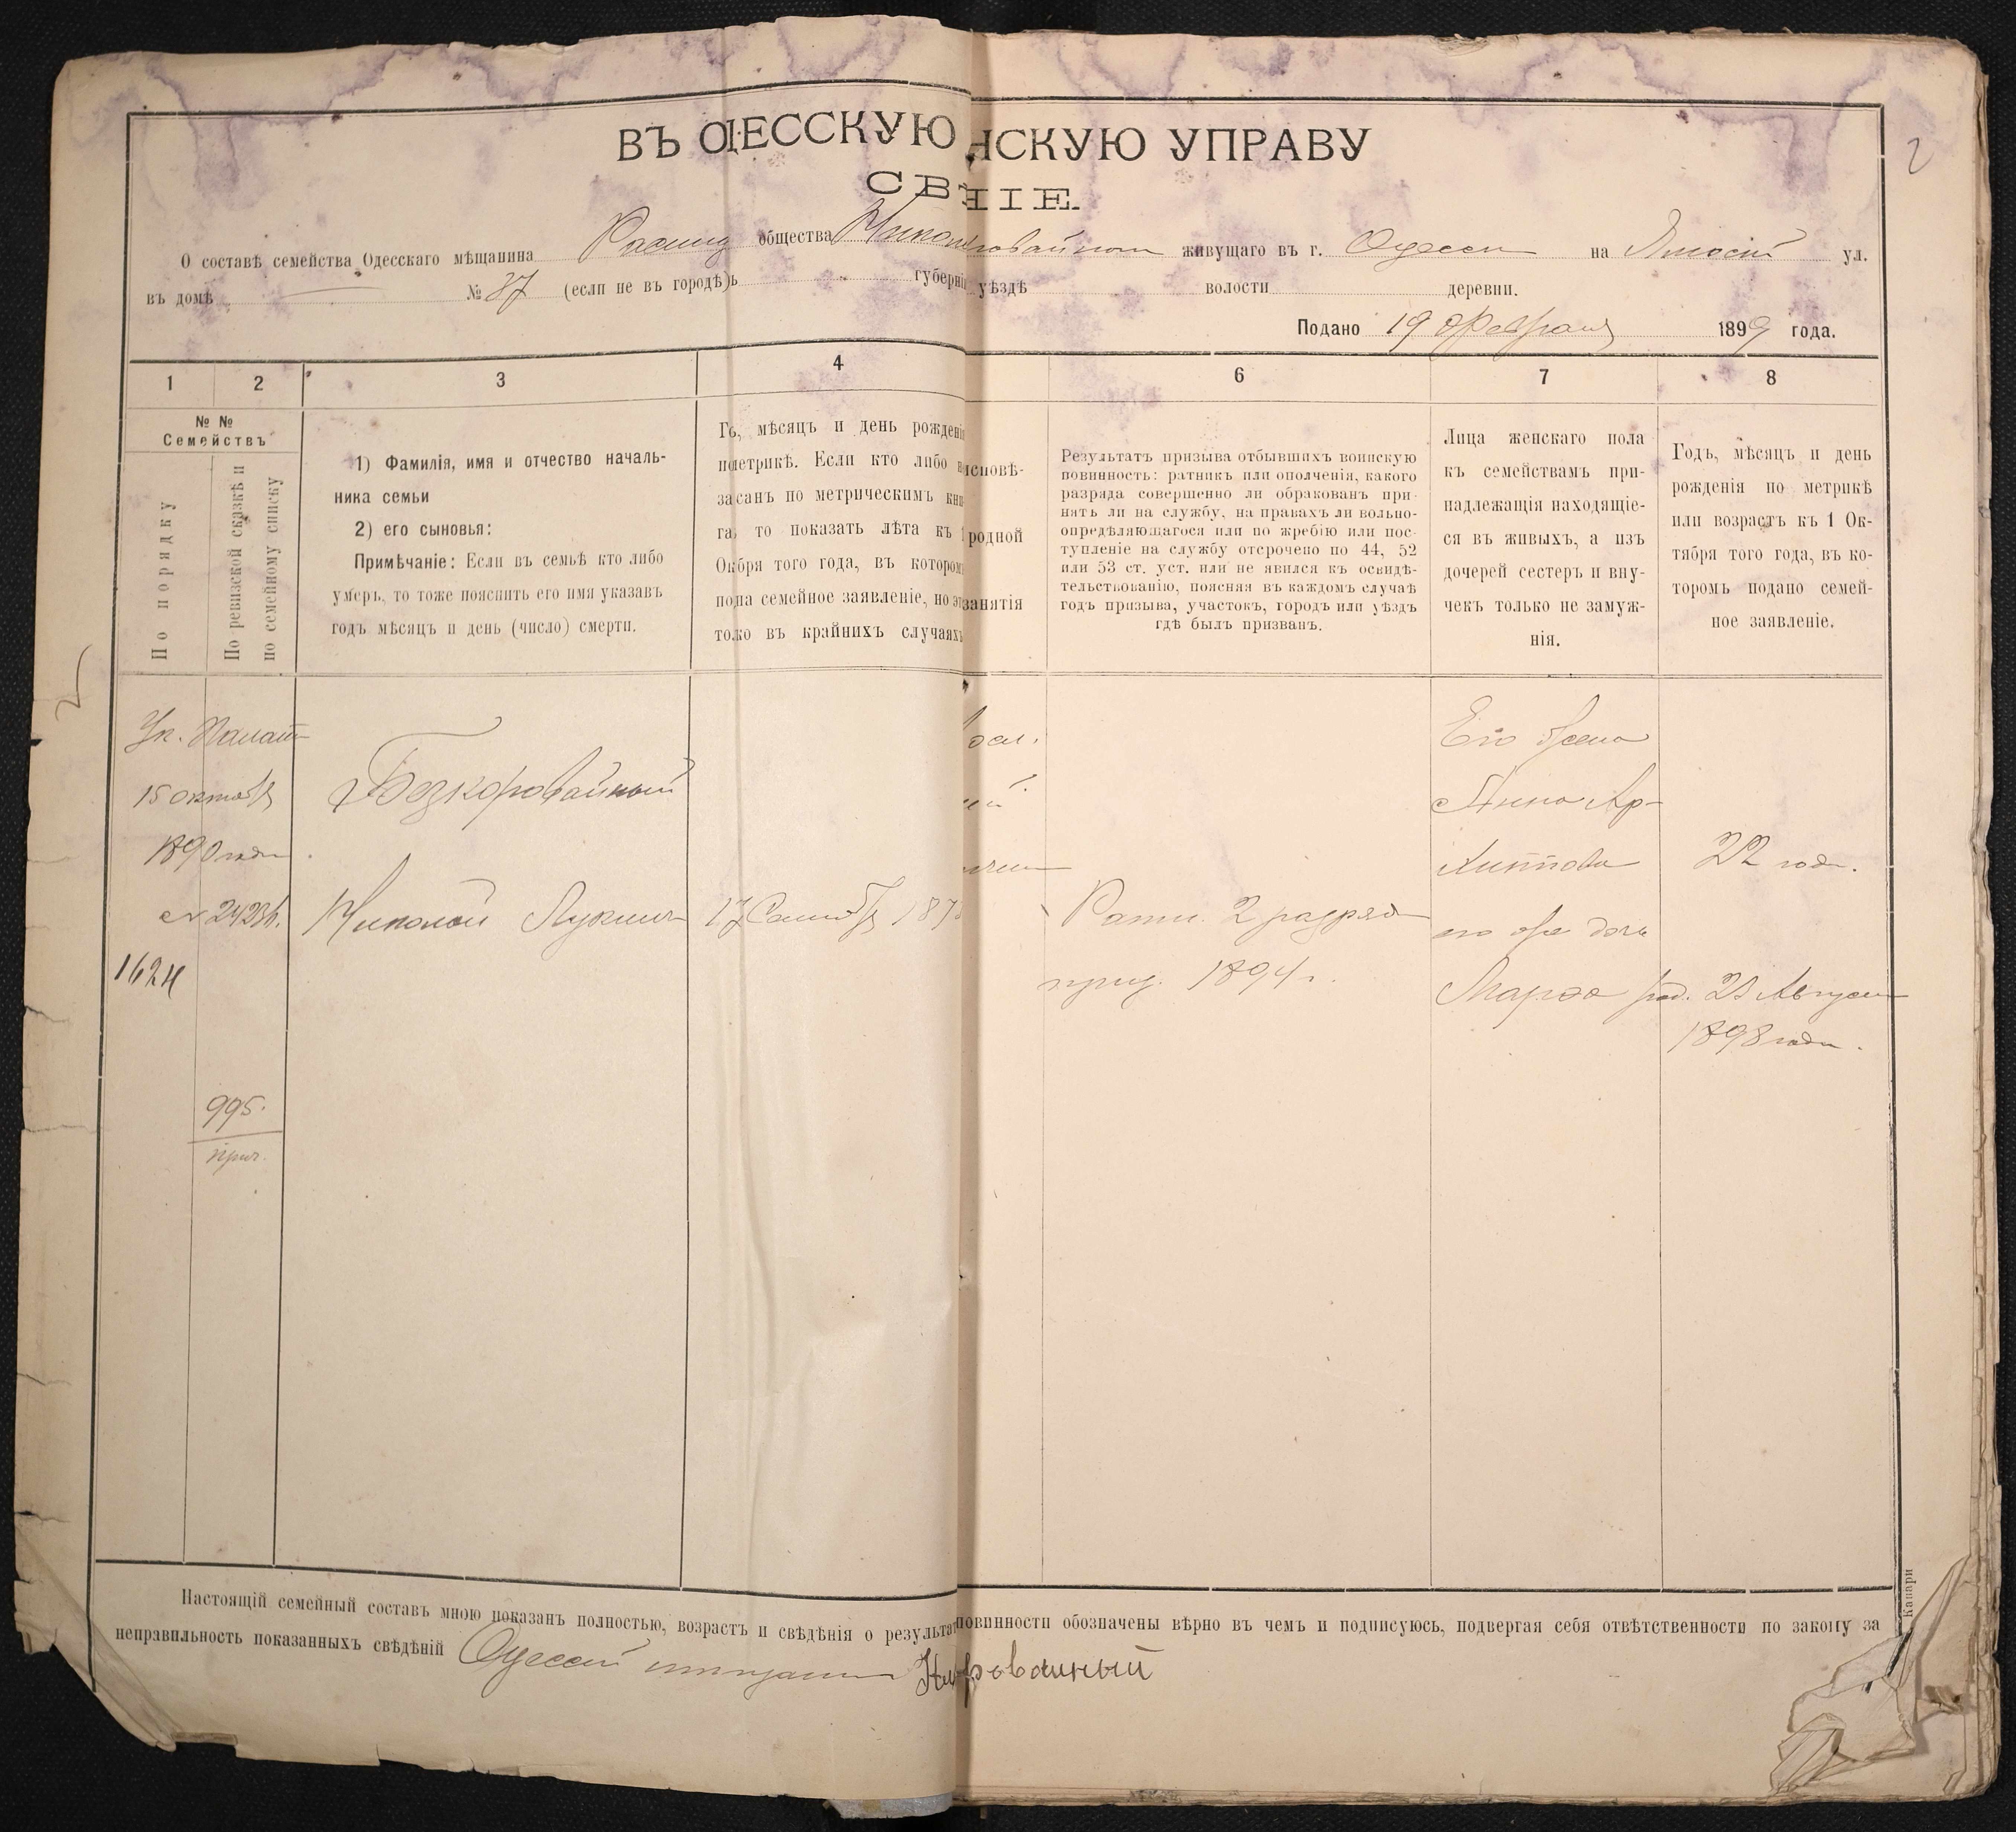 2
ВЪ ОДЕССКУЮ НСКУЮ УПРАВУ
СВѢ НІЕ.
О составѣ семейства Одесскаго мѣщанина общества живущаго въ г. Одесси на ул.
въ домѣ № 37 (если не въ городѣ) губерніи уѣздѣ волости деревни.
Подано 19 Февраля 1899 года.
1 2 3 4 6 7 8
№ №
Семействъ
По порядку
По ревизской сказкѣ и
по семейному списку
1) Фамилія, имя и отчество началь-
ника семьи
2) его сыновья:
Примѣчаніе: Если въ семьѣ кто либо
умеръ, то тоже пояснить его имя указавъ
годъ мѣсяцъ и день (число) смерти.
Го, мѣсяцъ и день рожденія
метрикѣ. Если кто либо
по метрическимъ
то показать лѣта къ 1
того года, въ которомъ
семейное заявленіе, но
въ крайнихъ случаяхъ
исповѣ-
родной
занятія
Результатъ призыва отбывшихъ воинскую
повинность: ратникъ или ополченія, какого
разряда совершенно ли обракованъ при-
нятъ ли на службу, на правахъ ли вольно-
опредѣляющагося или по жребію или пос-
тупленіе на службу отсрочено по 44, 52
или 53 ст. уст. или не явился къ освидѣ-
тельствованію, поясняя въ каждомъ случаѣ
годъ призыва, участокъ, городъ или уѣздъ
гдѣ былъ призванъ.
Лица женскаго пола
къ семействамъ при-
надлежащія находящіе-
ся въ живыхъ, а изъ
дочерей сестеръ и вну-
чекъ только не замуж-
нія.
Годъ, мѣсяцъ и день
рожденія по метрикѣ
или возрастъ къ 1 Ок-
тября того года, въ ко-
торомъ подано семей-
ное заявленіе.
Ук. Палат
15 октяб
1890 года
1624
Безкоровайный
Николай Лукинъ
17 Сентяб 187
Ратн. 2 разряд
приз. 1894 г.
Его жена
Анна Ар-
хиппова 22 года.
его же дочь
Марѳа род. Август
1898 года.
995.
прич.
Настоящій семейный составъ мною показанъ полностью, возрастъ и свѣдѣнія о результат повинности обозначены вѣрно въ чемъ и подписуюсь, подвергая себя отвѣтственности по закону за
неправильность показанныхъ свѣдѣній Одесскій мещанин
Канари